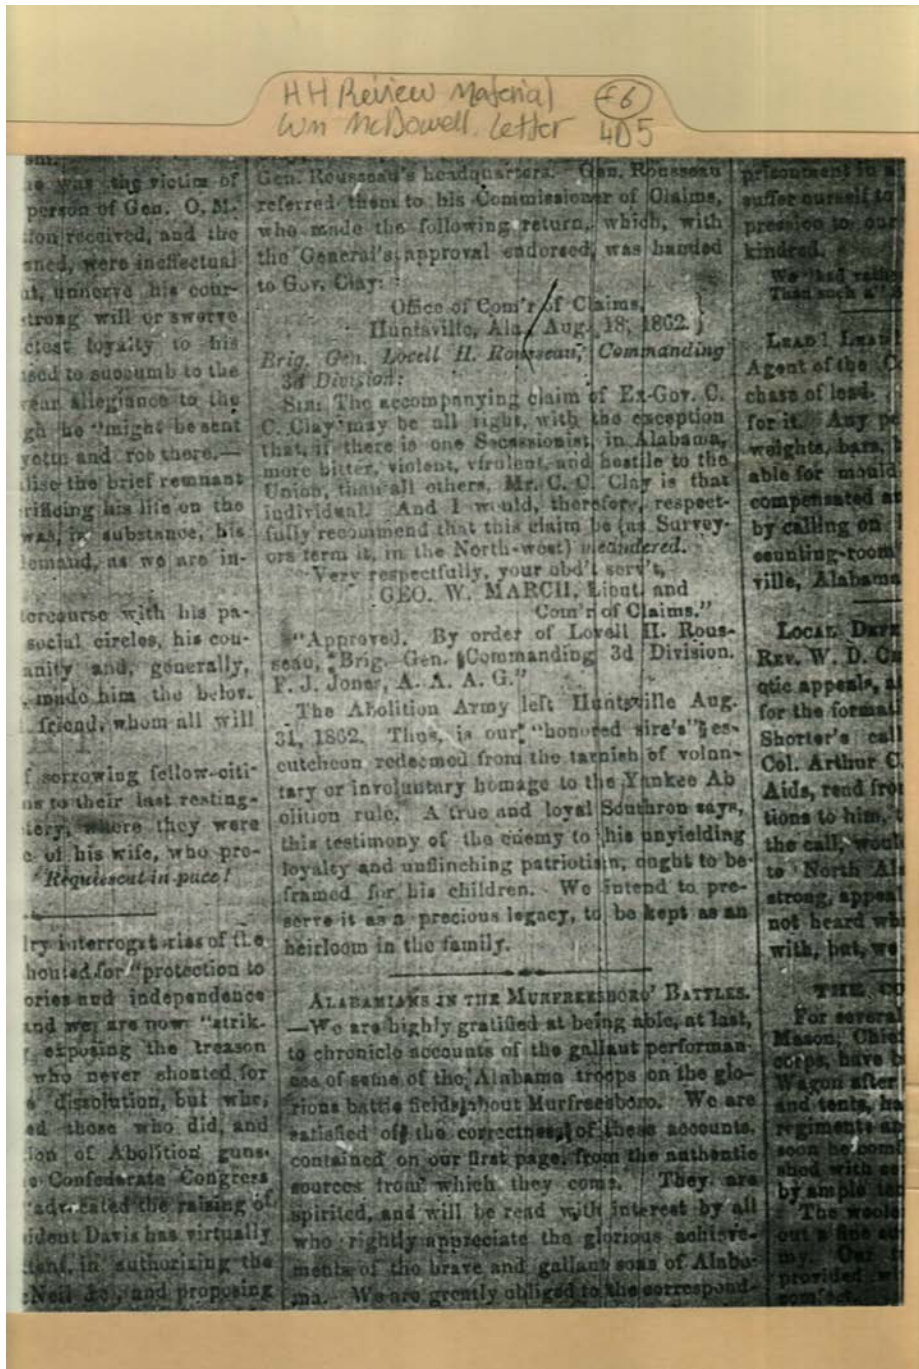 HH Review Material f6
Wm McDowell Letter 4D5
he was the victim of
person of Gen. O. M.
ion received, and the
ned, were ineffectual
unnerve his cour-
trong will or swerve
loyalty to his
sed to succumb to the
allegiance to the
gh he "might be sent
and rob there,—
the brief remnant
rificing his life on the
was, in substance, his
emand, as we are in-
tercourse with his pa-
social circles, his cou-
anity and, generally,
made him the belov-
friend, whom all will
f sorrowing fellow-citi-
ns to their last resting-
tery, where they were
of his wife, who pre-
Requiescat in pace!
ry interrogatories of the
houted for "protection to
ories and independence
and we are now "strik-
exposing the treason
who never shouted for
dissolution, but who,
ed those who did, and
ion of Abolition guns.
Confederate Congress
advocated the raising of
ident Davis has virtually
in authorizing the
and proposing
Gen. Rousseau's headquarters. Gen. Rousseau
referred them to his Commissioner of Claims,
who made the following return, which, with
the General's approval endorsed, was handed
to Gov. Clay:
Office of Com'r of Claims,
Huntsville, Ala., Aug. 18, 1862.
Brig. Gen. Lovell H. Rousseau, Commanding
3d Division:
SIR: The accompanying claim of Ex-Gov. C.
C. Clay may be all right, with the exception
that, if there is one Secessionist, in Alabama,
more bitter, violent, virulent, and hostile to the
Union, than all others, Mr. C. C. Clay is that
individual. And I would, therefore, respect-
fully recommend that this claim be (as Survey-
ors term it, in the North-west) meandered.
Very respectfully, your obd't serv't,
GEO. W. MARCH, Lieut. and
Com'r of Claims."
"Approved. By order of Lovell H. Rous-
seau, Brig. Gen. Commanding 3d Division.
F. J. Jones, A. A. A. G."
The Abolition Army left Huntsville Aug.
31, 1862. Thus, is our "honored sire's" es-
cutcheon redeemed from the tarnish of volun-
tary or involuntary homage to the Yankee Ab
olition rule. A true and loyal Southron says,
this testimony of the enemy to his unyielding
loyalty and unflinching patriotism, ought to be
framed for his children. We intend to pre-
serve it as a precious legacy, to be kept as an
heirloom in the family.
ALABAMIANS IN THE MURFREESBORO' BATTLES.
—We are highly gratified at being able, at last,
to chronicle accounts of the gallant performan-
ces of some of the Alabama troops on the glo-
rious battle fields about Murfreesboro. We are
satisfied of the correctness of these accounts,
contained on our first page, from the authentic
sources from which they come. They are
spirited, and will be read with interest by all
who rightly appreciate the glorious achieve-
ments of the brave and gallant sons of Alaba-
ma. We are greatly obliged to the correspond-
prisonment in
suffer ourself to
pression to our
kindred.
We had rather
Than such a
LEAD! LEAD
Agent of the
chase of lead.
for it. Any
weights, bars,
able for mould
compensated
by calling on
counting-room
ville, Alabama
LOCAL
REV. W. D.
otic appeals,
for the formati
Shorter's call
Col. Arthur C.
Aids, read from
tions to him,
the call, would
to North Ala
strong, appeal
not heard
with, but, we
THE
For several
Mason, Chief
corps, have
Wagon after
and tents,
regiments
soon be
shed with
by ample
The
out a fine
my. Our
provided